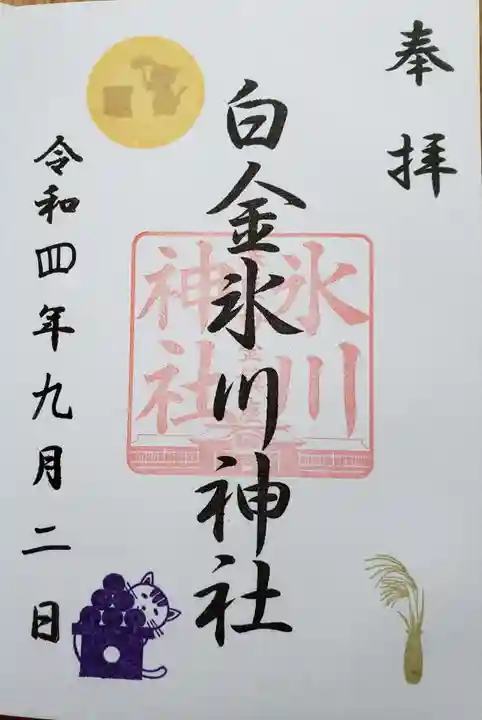 奉拝
白金氷川神社
氷川
神社
令和四年九月二日